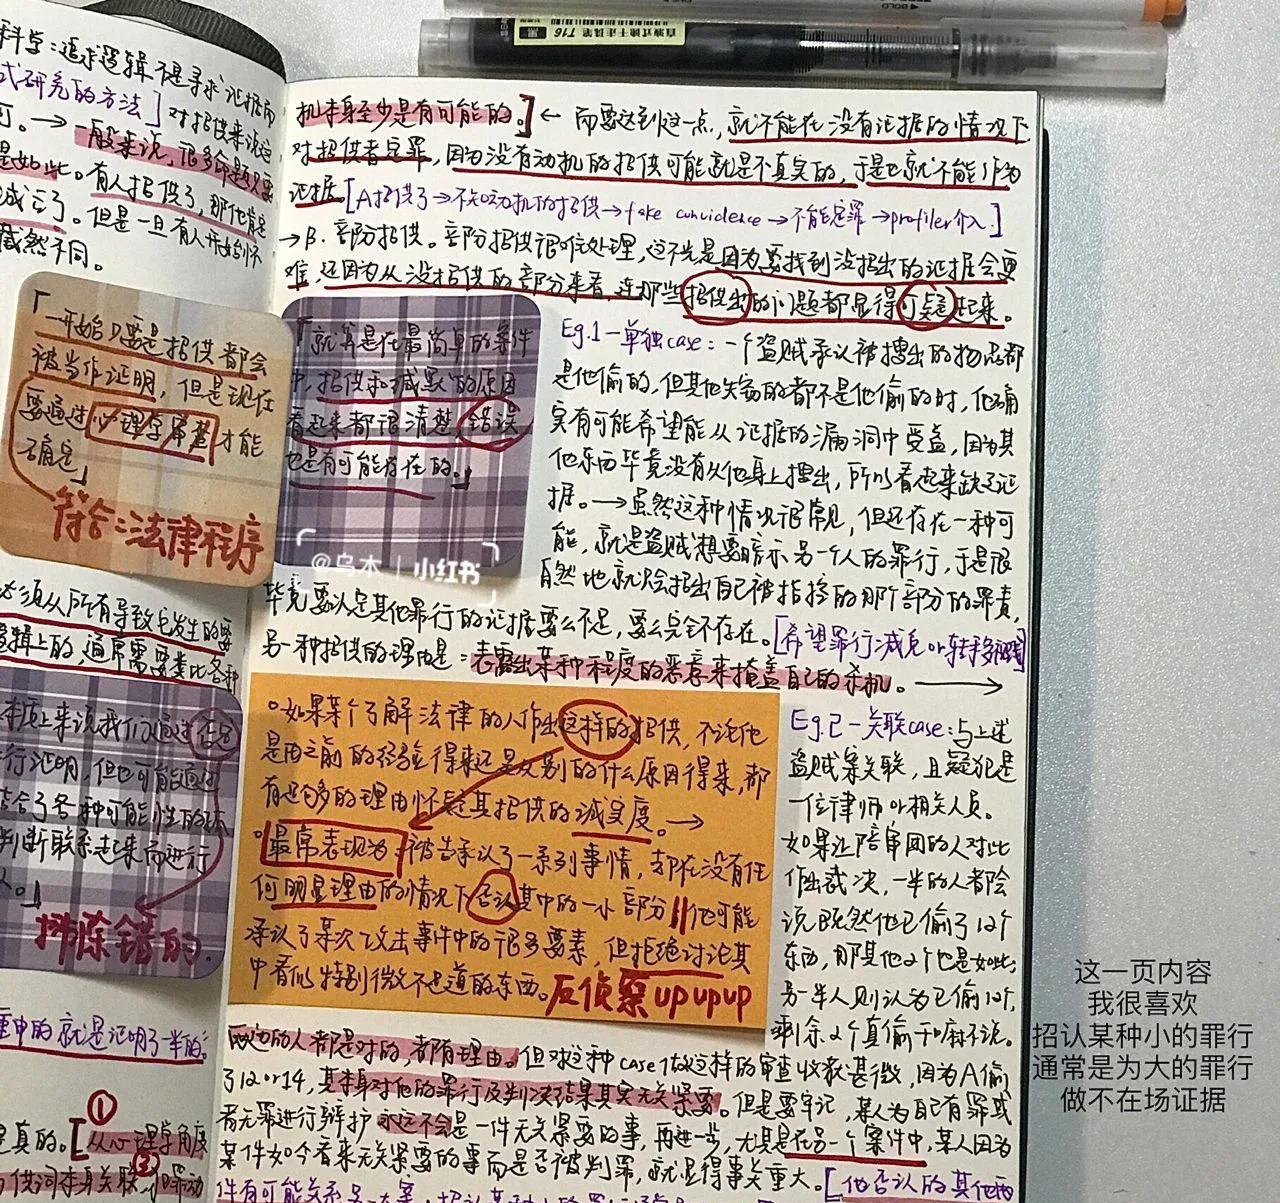 BOLD
直液式走珠笔 T16
黑
科学：追求逻辑不是寻求证据而
式研究的方法］对招供来说这
可。→一般来说，很多命题只要
是如此。有人招供了，那他肯定
成立了。但是一旦有人开始怀
截然不同。
「一开始只要是招供都会
被当作证明，但是现在
要通过心理学审整才能
确定」
符合：法律程序
必须从所有导致它发生的要
逻辑上的，通常需要类比各种
本质上来说我们通过否定
行证明，但也可能通过
结合了各种可能性的
判断联系起来而进行
。」
排除错的.
重中的就是证明了一半的。
①
是真的。[从心理学角度
供词本身关联
机本身至少是有可能的。］← 而要达到这一点，就不能在没有证据的情况下
对招供者定罪，因为没有动机的招供可能就是不真实的，于是也就不能作为
证据。[A招供了→不知动机的招供→fake convidence→不能定罪→profiler介入.]
→B. 部分招供。部分招供很难处理，这不光是因为要找到没招出的证据会更
难，还因为从没招供的部分来看，连那些招供出的问题都显得可疑起来。
「就算是在最简单的案件
中，招供和缄默的原因
看起来都很清楚，错误
也是有可能存在的。」
@乌木 | 小红书
Eg.1-单独case：一个盗贼承认被搜出的物品都
是他偷的，但其他失窃的都不是他偷的时，他确
实有可能希望能从证据的漏洞中受益，因为其
他东西毕竟没有从他身上搜出，所以看起来缺乏证
据。→虽然这种情况很常见，但还存在一种可
能，就是盗贼想要暗示另一个人的罪行，于是很
自然地就只会招出自己被指控的那个部分的罪责，
毕竟要认定其他罪行的证据要么不足，要么完全不存在。[希望罪行减免or转移视野]
另一种招供的理由是：表露出某种程度的恶意来掩盖自己的杀机。→
。如果某个了解法律的人作出这样的招供，不论他
是由之前的经验得来还是由别的什么原因得来，都
有足够多的理由怀疑其招供的诚实度。→
。最常表现为：被告承认了一系列事情，却在没有任
何明显理由的情况下否认其中的一小部分‖他可能
承认了某次攻击事件中的很多要素，但拒绝讨论其
中看似特别微不足道的东西。反侦察upupup
Eg.2-关联case：与上述
盗贼案关联，且疑犯是
一位律师or相关人员。
如果让陪审团的人对此
作出裁决，一半的人都会
说既然他已偷了12个
东西，那其他2个也是如此；
另一半人则认为已偷12个，
剩余2个真偷干嘛不说。
两边的人都是对的，都有理由。但对这种case做这样的审查收获甚微，因为A偷
了12or14，其本身对他的罪行及判决结果其实无关紧要。但是要牢记，某人为自己有罪或
者无罪进行辩护永远不会是一件无关紧要的事，再进一步，尤其是在另一个案件中，某人因为
某件如今看来无关紧要的事而是否被判罪，就显得事关重大。[他否认的其他两
件有可能关系另一大案，招认某种小的罪行
这一页内容
我很喜欢
招认某种小的罪行
通常是为大的罪行
做不在场证据